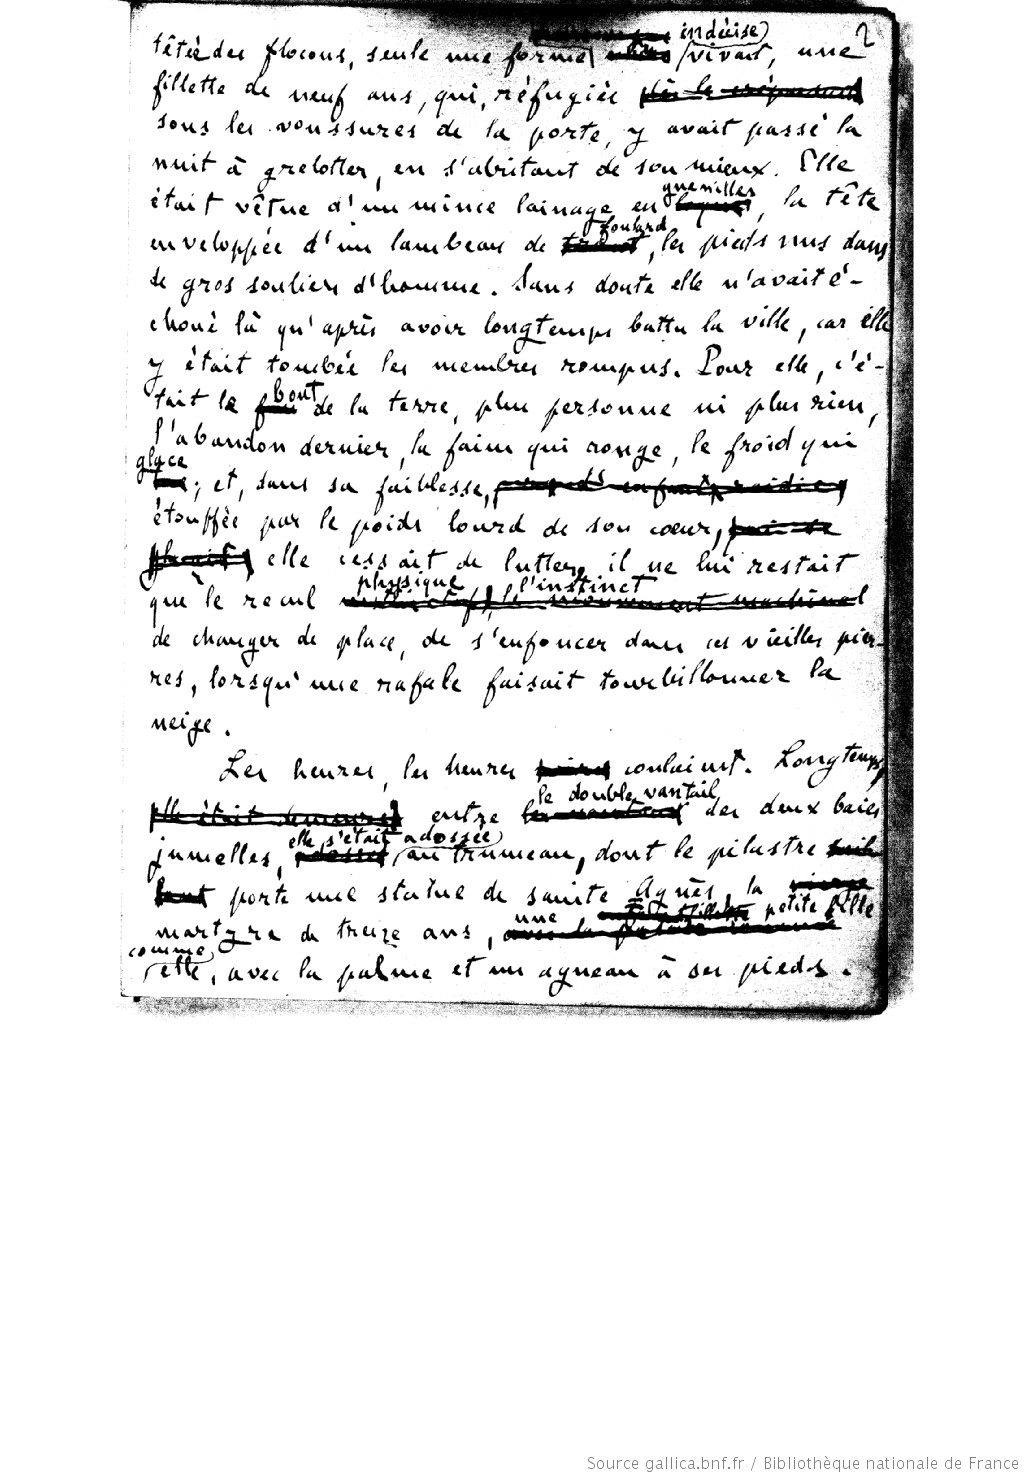 2
indécise
têtée des flocons, seule une forme vivait, une
fillette de neuf ans, qui, réfugiée dès le crépuscule
sous les voussures de la porte, y avait passé la
nuit à grelotter, en s'abritant de son mieux. Elle
guenilles
était vêtue d'un mince lainage en loques, la tête
foulard
enveloppée d'un lambeau de, les pieds nus dans
de gros souliers d'homme. Sans doute elle n'avait é-
choué là qu'après avoir longtemps battu la ville, car elle
y était tombée les membres rompus. Pour elle, c'é-
bout
tait le de la terre, plus personne ni plus rien,
l'abandon dernier, la faim qui ronge, le froid qui
glace
; et, dans sa faiblesse,
étouffée par le poids lourd de son cœur,
elle cessait de lutter, il ne lui restait
physique, l'instinct
que le recul le mouvement machinal
de changer de place, de s'enfoncer dans ces vieilles pier-
res, lorsqu'une rafale faisait tourbillonner la
neige.
Les heures, les heures coulaient. Longtemps,
le double vantail
elle était demeurée entre des deux baies
elle s'était adossée
jumelles, adossée au trumeau, dont le pilastre
porte une statue de sainte Agnès, la vierge
une petite fille
martyre de treize ans,
comme
elle, avec la palme et un agneau à ses pieds.
Source gallica.bnf.fr / Bibliothèque nationale de France